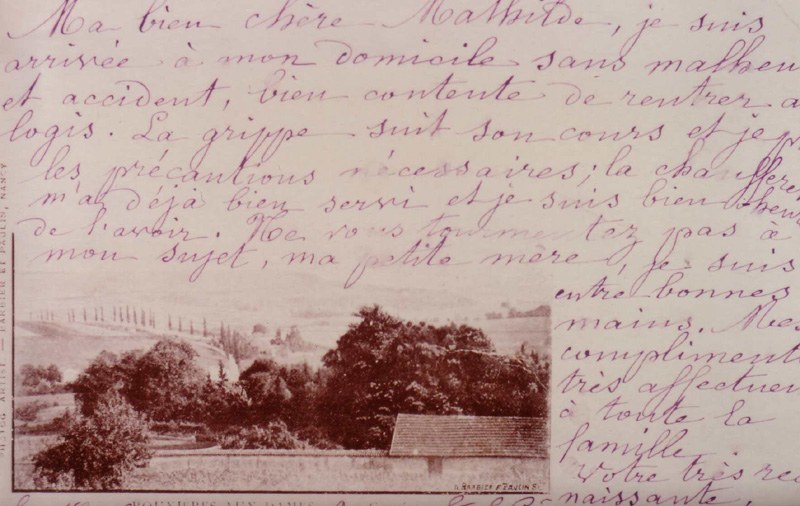 Ma bien chère Mathilde, je suis
arrivée à mon domicile sans malheu
et accident, bien contente de rentrer a
logis. La grippe suit son cours et je p
les précautions nécessaires; la chauffere
m'a déjà bien servi et je suis bien heu
de l'avoir. Ne vous tourmentez pas à
mon sujet, ma petite mère, je suis
entre bonnes
mains. Mes
compliment
très affectue
à toute la
famille
Votre très rec
naissante.
BARBIER ET PAULIN, NANCY
BARBIER & PAULIN